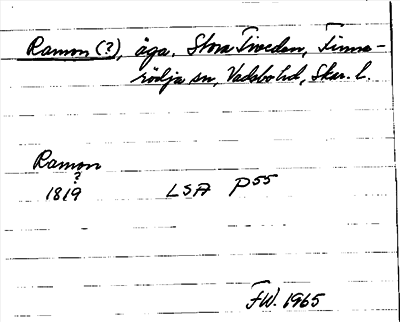 Ramon (?), äga. Stora Tiveden, Finne-
rödja sn, Vadsbo hd, Skar. l.
Ramon
?
1819 LSA P55
FW. 1965